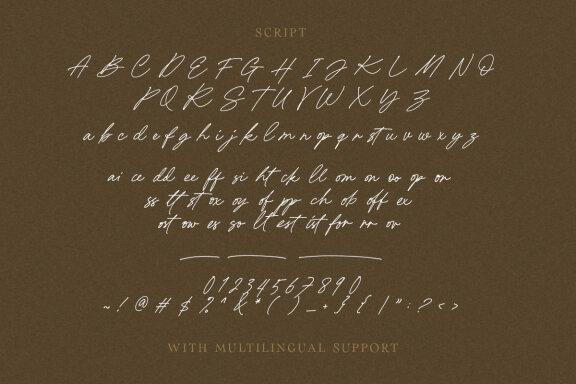 SCRIPT
A B C D E F G H I J K L M N O
P Q R S T U V W X Y Z
a b c d e f g h i j k l m n o p q r s t u v w x y z
ai ce dd ee ff si ht ck ll om on oo op on
ss tt st ox oy of pp ch ob off ex
ost ow es so lt est ist for rr ov
0 1 2 3 4 5 6 7 8 9 0
~ ! @ # $ % ^ & * ( ) _ + } { | " : ? < >
WITH MULTILINGUAL SUPPORT